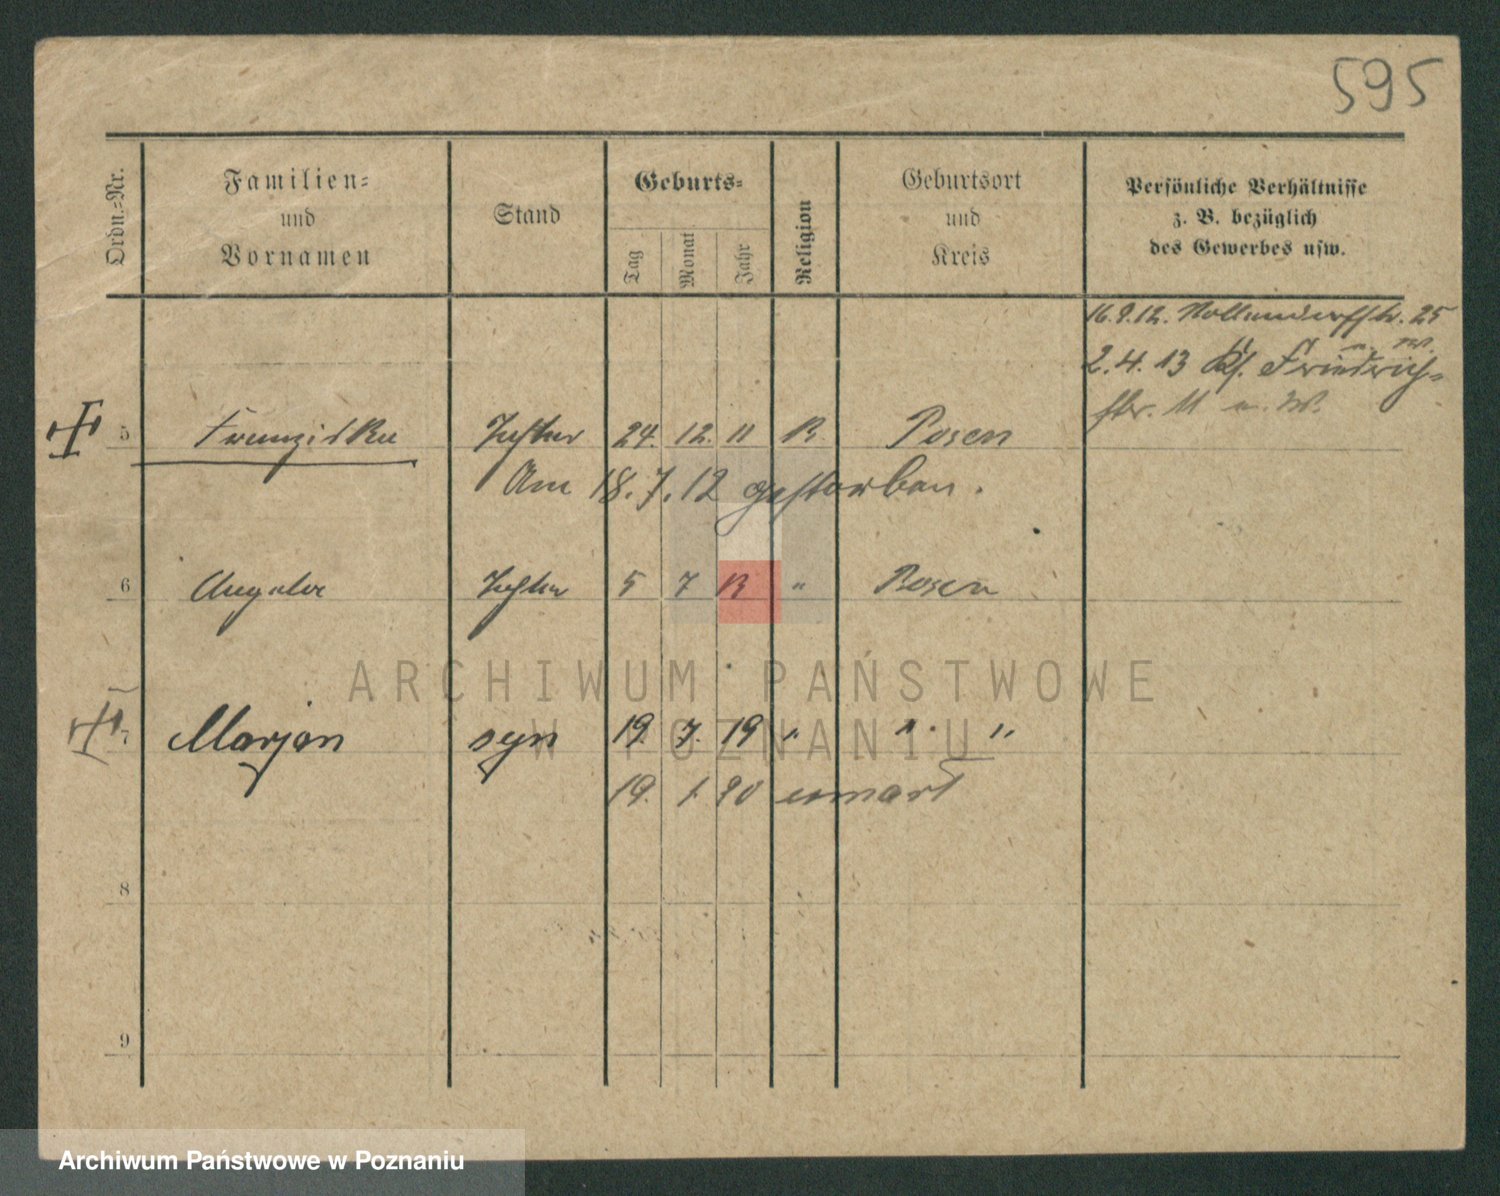 595
Ordn.-Nr.
Familien-
und
Vornamen
Stand
Geburts-
Tag
Monat
Jahr
Religion
Geburtsort
und
Kreis
Persönliche Verhältnisse
z. B. bezüglich
des Gewerbes usw.
16.9.12. Nollendorfstr. 25
2.4.13 Kf. Friedrich-
str. 11 u. W.
5 Franziska Tochter 24. 12. 11 K Posen
Am 18.7.12 gestorben.
6 Angela Tochter 5 7 13 " Posen
7 Marjan syn 19. 7. 19 " " "
19. 1. 20 umarł
8
9
ARCHIWUM PAŃSTWOWE
W POZNANIU
Archiwum Państwowe w Poznaniu